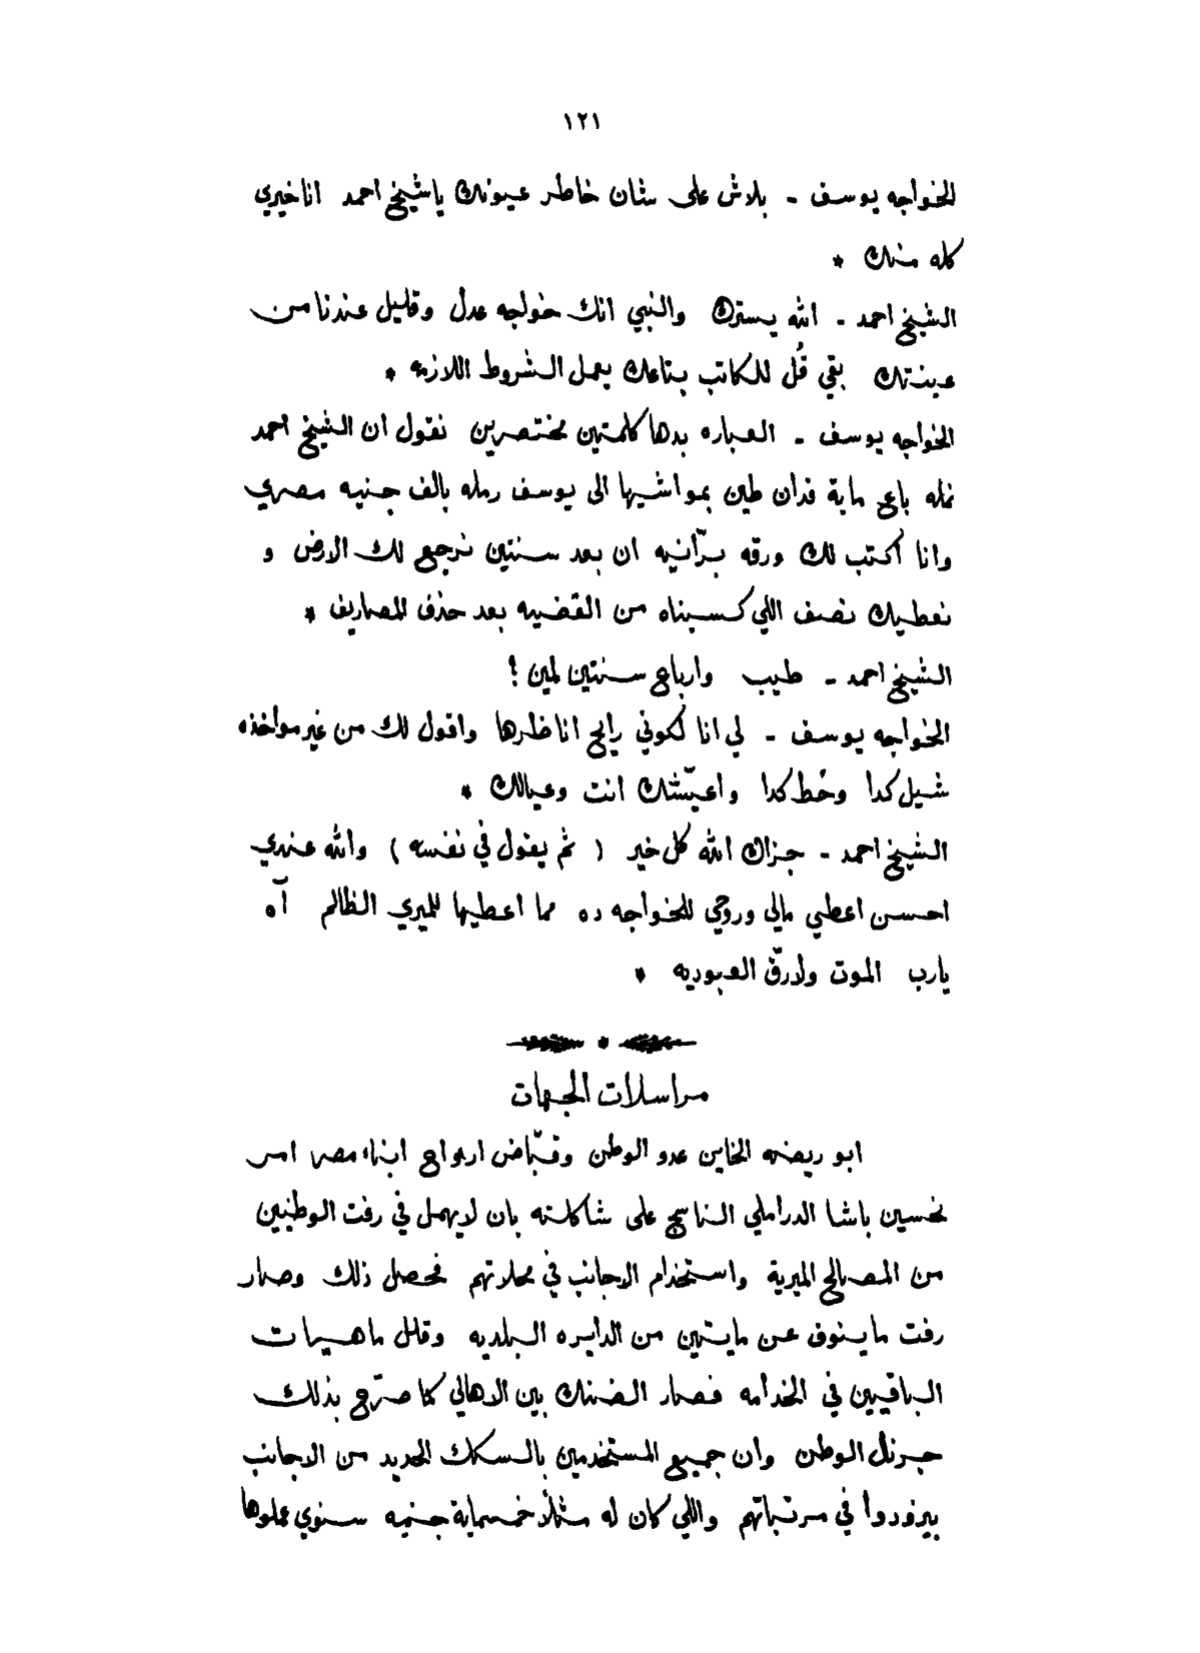 ١٢١
الخواجه يوسف - بلاش على شان خاطر عيونك ياشيخ احمد انا خيري
كله منك *
الشيخ احمد - الله يسترك والنبي انك خواجه عدل وقليل عندنا من
عينتك بقي قُل للكاتب بتاعك يعمل الشروط اللازمه *
الخواجه يوسف - العباره بدها كلمتين مختصرين نقول ان الشيخ احمد
نمله باع ماية فدان طين بمواشيها الى يوسف رمله بالف جنيه مصري
وانا اكتب لك ورقه برّانيه ان بعد سنتين نرجع لك الارض و
نعطيك نصف اللي كسبناه من القضيه بعد حذف المصاريف *
الشيخ احمد - طيب وارباع سنتين لمين ؟
الخواجه يوسف - لي انا لكوني رايح اناظرها واقول لك من غير مواخذه
شيل كدا وحُط كدا واعيّشك انت وعيالك *
الشيخ احمد - جزاك الله كل خير ( ثم يقول في نفسه ) والله عندي
احسن اعطي مالي وروحي للخواجه ده مما اعطيها للميري الظالم آه
يارب الموت ولارقّ العبوديه *
*
مراسلات الجهات
ابو ريضه الخاين عدو الوطن وقبّاض ارواح ابناء مصر امر
تحسين باشا الدراملي الناسج على شاكلته بان لايهمل في رفت الوطنين
من المصالح الميرية واستخدام الاجانب في محلاتهم فحصل ذلك وصار
رفت ماينوف عن مايتين من الدايره البلديه وقلل ماهيات
الباقيين في الخدامه فصار الضنك بين الاهالي كما صرّح بذلك
جرنال الوطن وان جميع المستخدمين بالسكك الحديد من الاجانب
بيزودوا في مرتباتهم واللي كان له مثلاً خمسماية جنيه سنوي عملوها